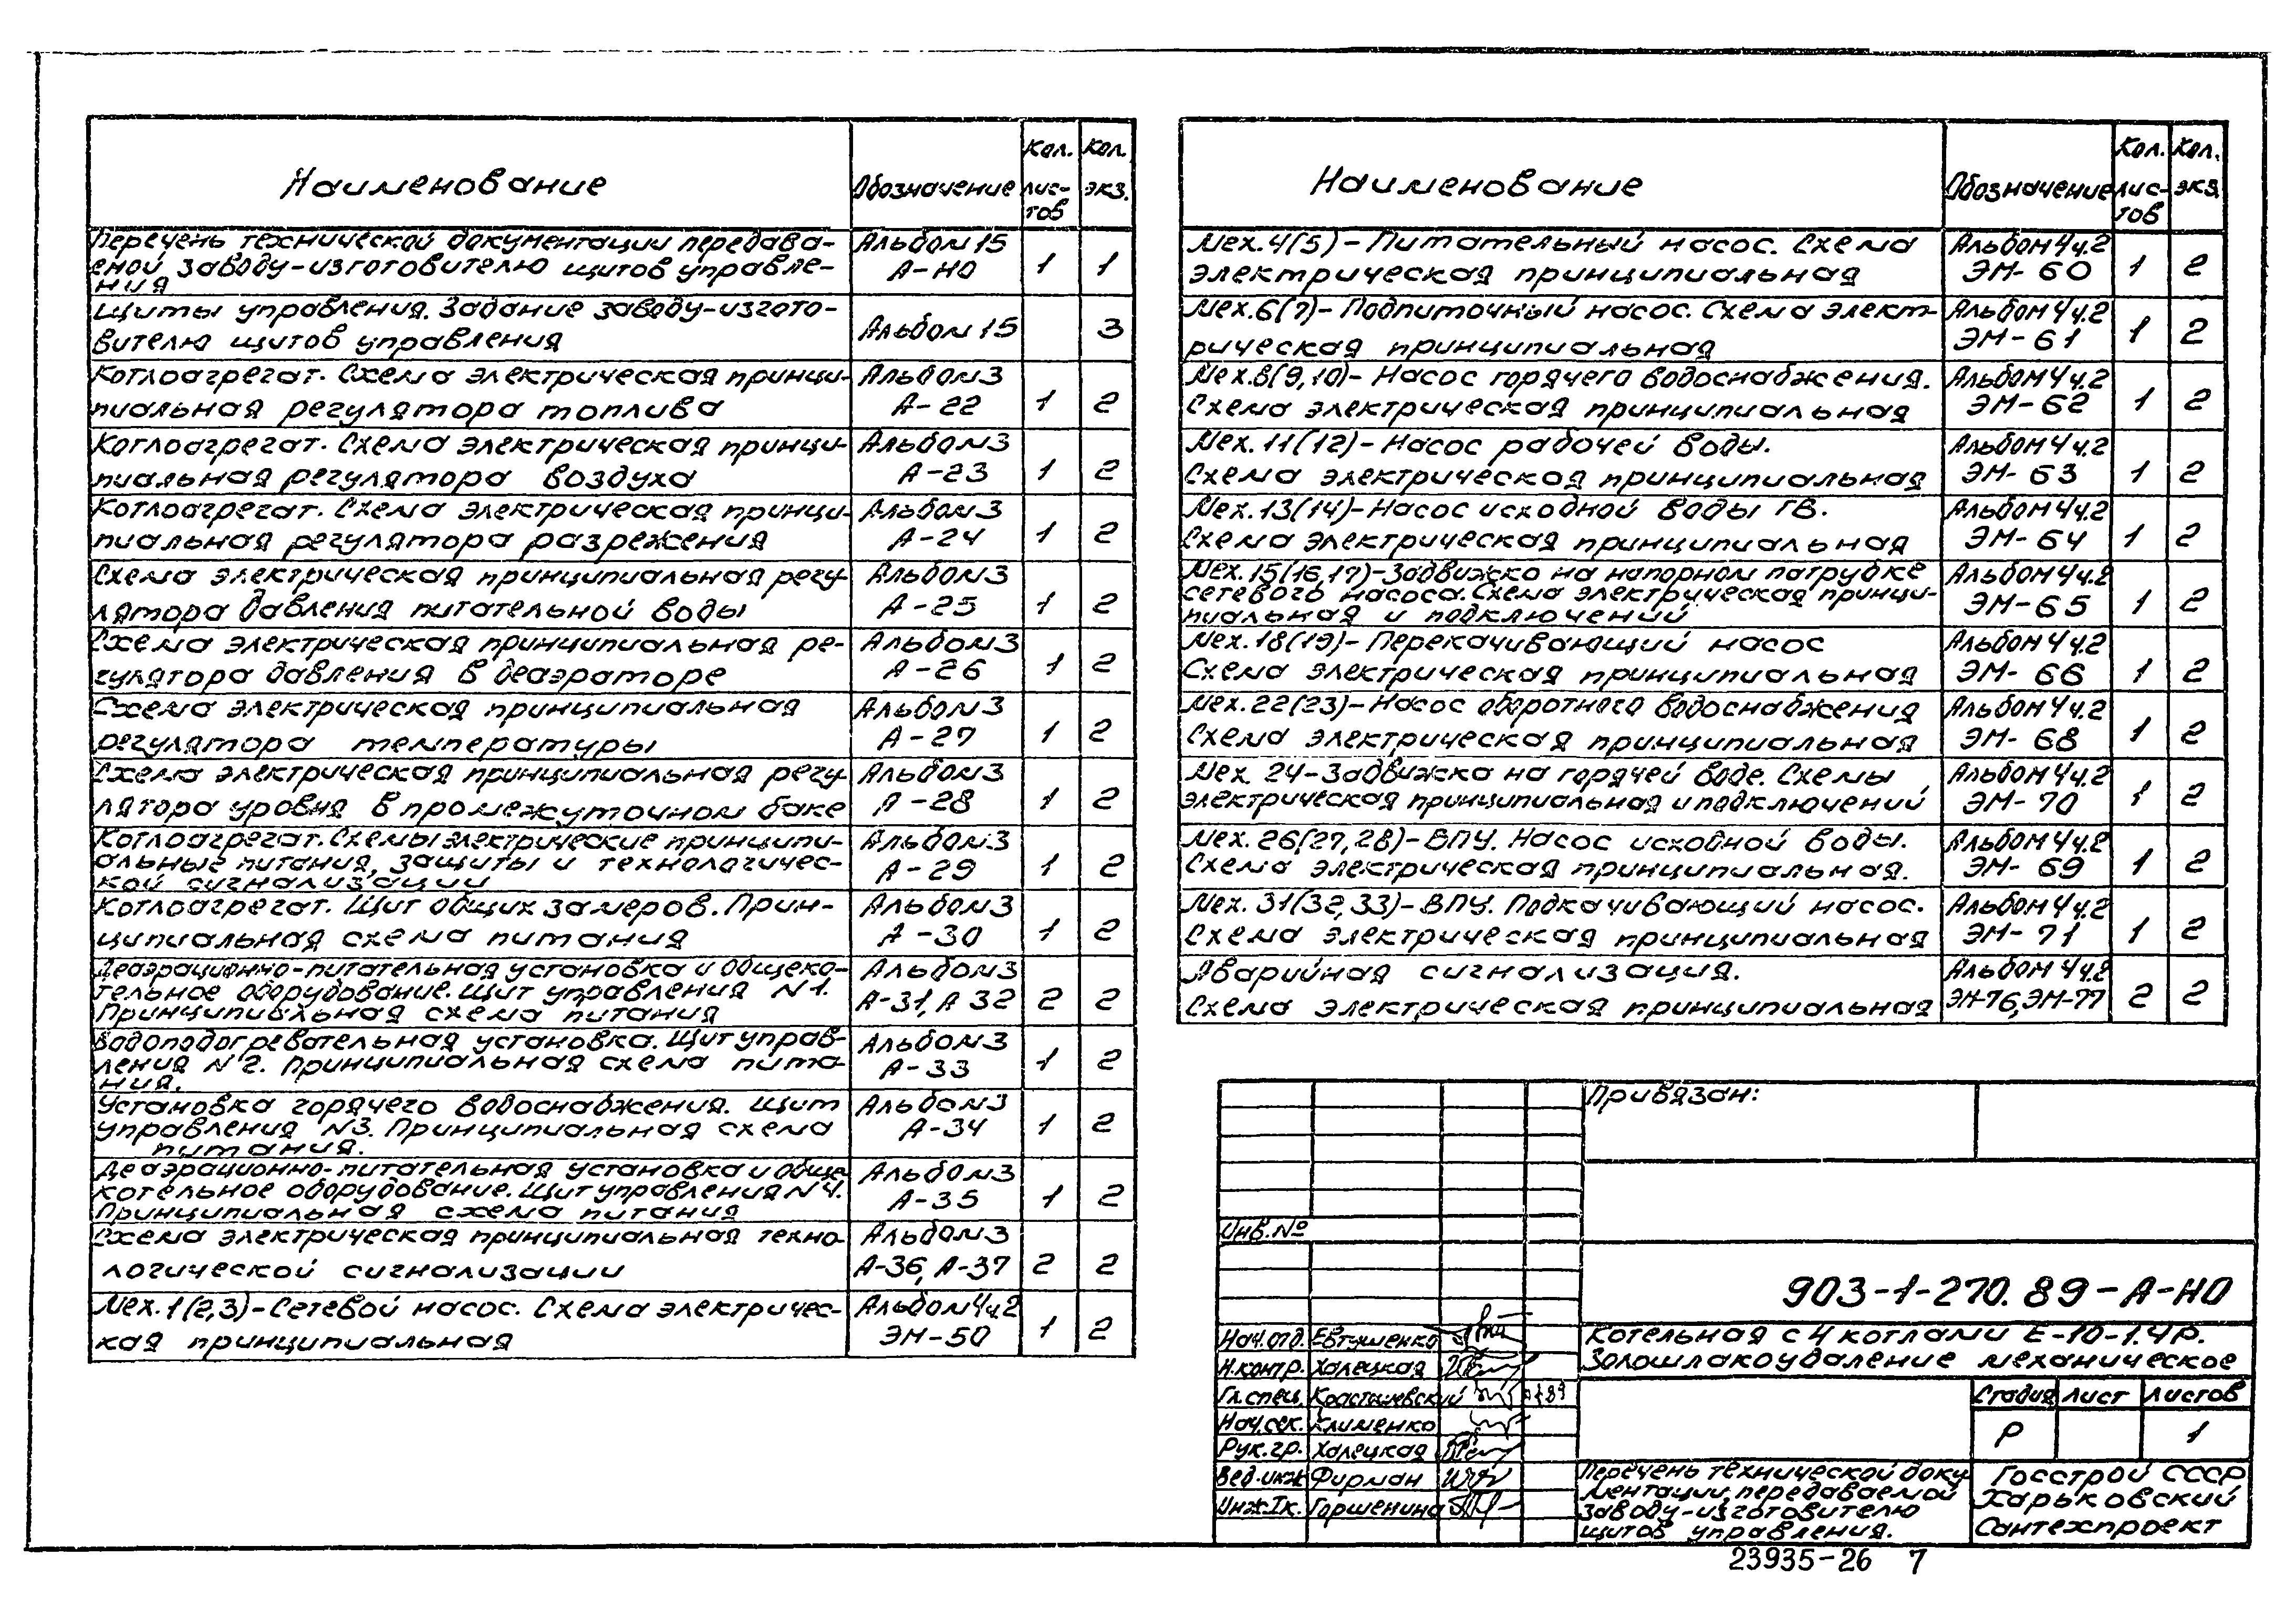 Наименование
Обозначение
Кол. лис-
тов
Кол. экз.
Перечень технической документации передава-
емой заводу-изготовителю щитов управле-
ния
Альбом 15
А-НО
1
1
Щиты управления. Задание заводу-изгото-
вителю щитов управления
Альбом 15
3
Котлоагрегат. Схема электрическая принци-
пиальная регулятора топлива
Альбом 3
А-22
1
2
Котлоагрегат. Схема электрическая принци-
пиальная регулятора воздуха
Альбом 3
А-23
1
2
Котлоагрегат. Схема электрическая принци-
пиальная регулятора разрежения
Альбом 3
А-24
1
2
Схема электрическая принципиальная регу-
лятора давления питательной воды
Альбом 3
А-25
1
2
Схема электрическая принципиальная ре-
гулятора давления в деаэраторе
Альбом 3
А-26
1
2
Схема электрическая принципиальная
регулятора температуры
Альбом 3
А-27
1
2
Схема электрическая принципиальная регу-
лятора уровня в промежуточном баке
Альбом 3
А-28
1
2
Котлоагрегат. Схемы электрические принципи-
альные питания, защиты и технологичес-
кой сигнализации
Альбом 3
А-29
1
2
Котлоагрегат. Щит общих замеров. Прин-
ципиальная схема питания
Альбом 3
А-30
1
2
Деаэрационно-питательная установка и общеко-
тельное оборудование. Щит управления N1.
Принципиальная схема питания
Альбом 3
А-31, А 32
2
2
Водоподогревательная установка. Щит управ-
ления N2. Принципиальная схема пита-
ния.
Альбом 3
А-33
1
2
Установка горячего водоснабжения. Щит
управления N3. Принципиальная схема
питания.
Альбом 3
А-34
1
2
Деаэрационно-питательная установка и обще-
котельное оборудование. Щит управления N4.
Принципиальная схема питания
Альбом 3
А-35
1
2
Схема электрическая принципиальная техно-
логической сигнализации
Альбом 3
А-36, А-37
2
2
Мех. 1(2,3)-Сетевой насос. Схема электричес-
кая принципиальная
Альбом 4ч.2
ЭМ-50
1
2
Наименование
Обозначение
Кол. лис-
тов
Кол. экз.
Мех. 4(5)-Питательный насос. Схема
электрическая принципиальная
Альбом 4ч.2
ЭМ-60
1
2
Мех. 6(7)-Подпиточный насос. Схема элект-
рическая принципиальная
Альбом 4ч.2
ЭМ-61
1
2
Мех. 8(9,10)-Насос горячего водоснабжения.
Схема электрическая принципиальная
Альбом 4ч.2
ЭМ-62
1
2
Мех. 11(12)-Насос рабочей воды.
Схема электрическая принципиальная
Альбом 4ч.2
ЭМ-63
1
2
Мех. 13(14)-Насос исходной воды ГВ.
Схема электрическая принципиальная
Альбом 4ч.2
ЭМ-64
1
2
Мех. 15(16,17)-Задвижка на напорном патрубке
сетевого насоса. Схема электрическая принци-
пиальная и подключений
Альбом 4ч.2
ЭМ-65
1
2
Мех. 18(19)-Перекачивающий насос
Схема электрическая принципиальная
Альбом 4ч.2
ЭМ-66
1
2
Мех. 22(23)-Насос оборотного водоснабжения
Схема электрическая принципиальная
Альбом 4ч.2
ЭМ-68
1
2
Мех. 24-Задвижка на горячей воде. Схемы
электрическая принципиальная и подключений
Альбом 4ч.2
ЭМ-70
1
2
Мех. 26(27,28)-ВПУ. Насос исходной воды.
Схема электрическая принципиальная.
Альбом 4ч.2
ЭМ-69
1
2
Мех. 31(32,33)-ВПУ. Подкачивающий насос.
Схема электрическая принципиальная
Альбом 4ч.2
ЭМ-71
1
2
Аварийная сигнализация.
Схема электрическая принципиальная
Альбом 4ч.2
ЭМ-76, ЭМ-77
2
2
Привязан:
Инв. №
903-1-270.89-А-НО
Нач. отд. Евтушенко
Н. контр. Халецкая
Гл. спец.
Нач. сек. Клименко
Рук. гр. Халецкая
Вед. инж Фирман
Инж. Iк. Горшенина
Котельная с 4 котлами Е-10-1.4Р.
Золошлакоудаление механическое
Стадия Лист Листов
Р 1
Перечень технической доку
ментации, передаваемой
заводу-изготовителю
щитов управления.
Госстрой СССР
Харьковский
Сантехпроект
23935-26 7